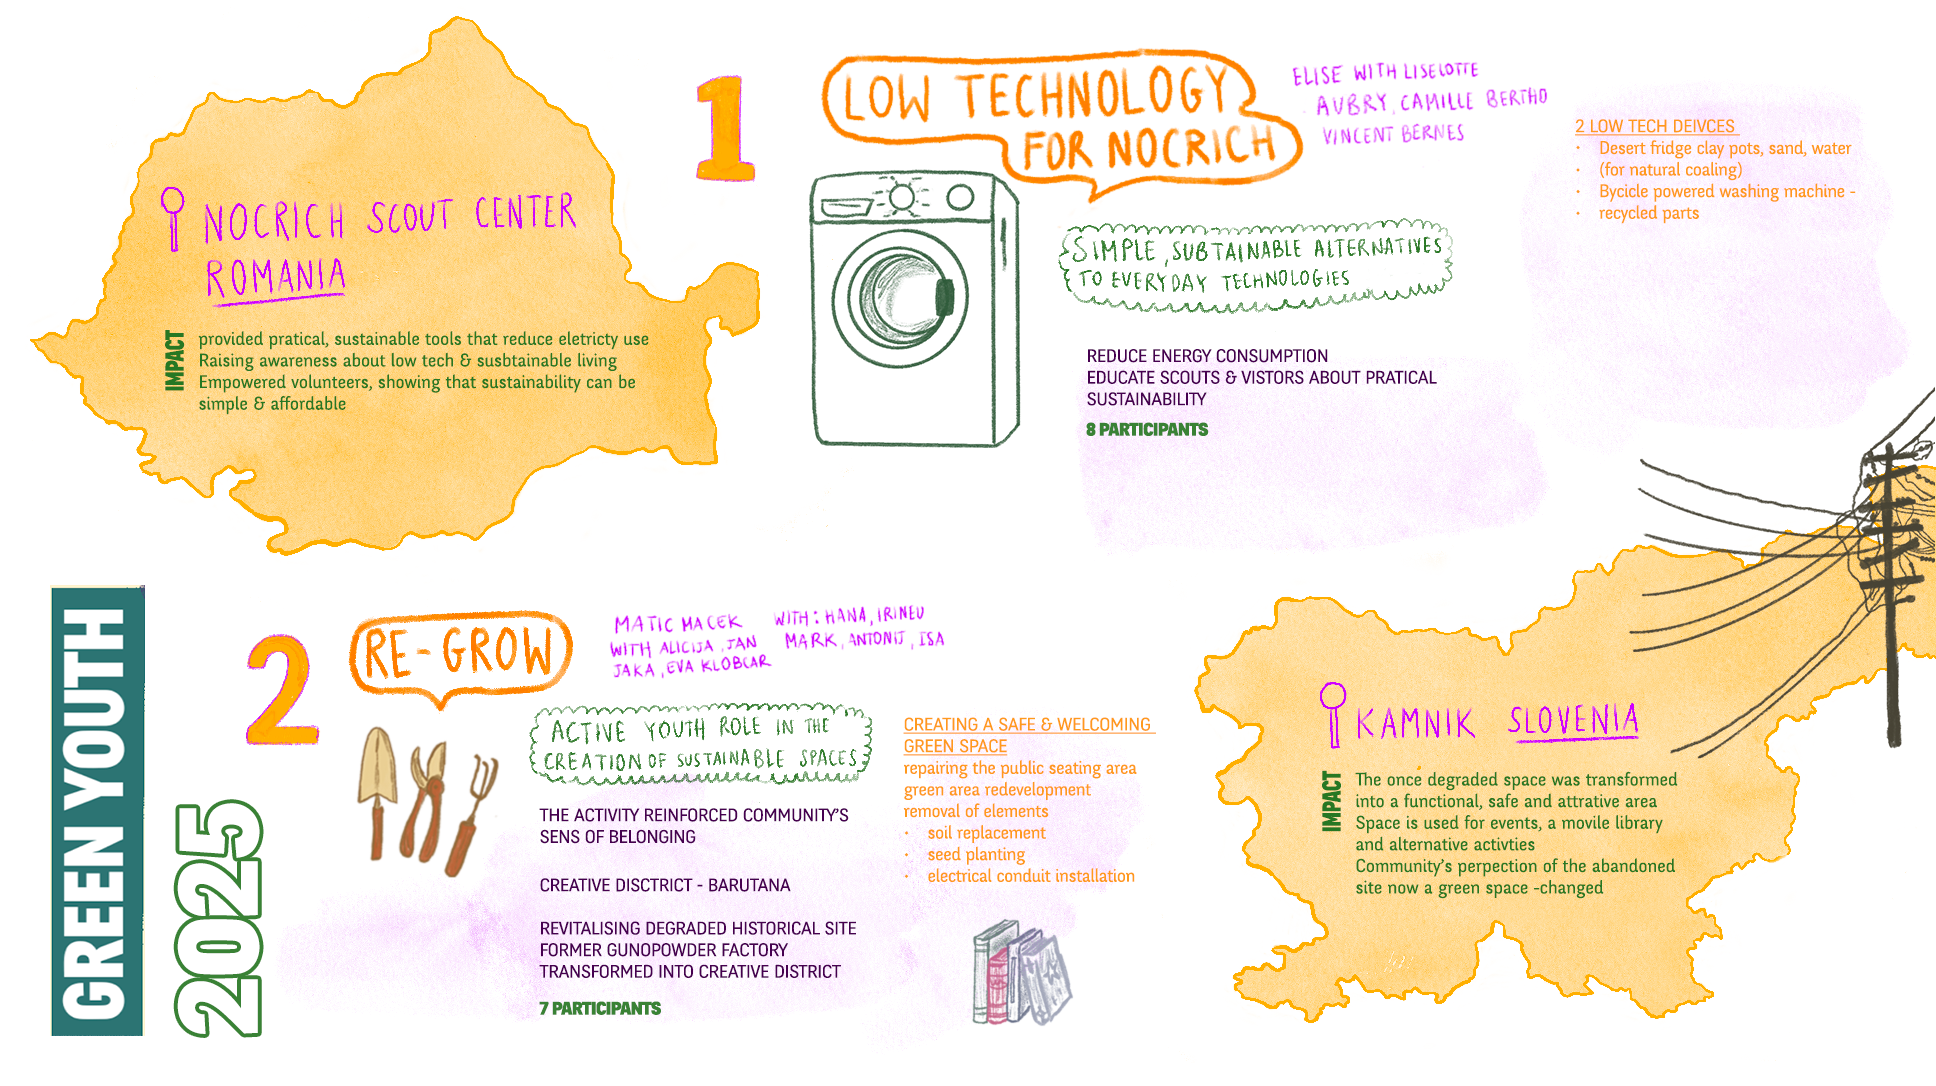 NOCRICH SCOUT CENTER
ROMANIA
IMPACT
provided pratical, sustainable tools that reduce eletricty use
Raising awareness about low tech & susbtainable living
Empowered volunteers, showing that sustainability can be
simple & affordable
1
LOW TECHNOLOGY
FOR NOCRICH
ELISE WITH LISELOTTE
AUBRY, CAMILLE BERTHO
VINCENT BERNES
SIMPLE, SUBTAINABLE ALTERNATIVES
TO EVERYDAY TECHNOLOGIES
REDUCE ENERGY CONSUMPTION
EDUCATE SCOUTS & VISTORS ABOUT PRATICAL
SUSTAINABILITY
8 PARTICIPANTS
2 LOW TECH DEIVCES
• Desert fridge clay pots, sand, water
• (for natural coaling)
• Bycicle powered washing machine -
• recycled parts
GREEN YOUTH
2025
2
RE-GROW
MATIC MACEK WITH: HANA, IRINEU
WITH ALICIJA, JAN MARK, ANTONIJ, ISA
JAKA, EVA KLOBCAR
ACTIVE YOUTH ROLE IN THE
CREATION OF SUSTAINABLE SPACES
THE ACTIVITY REINFORCED COMMUNITY'S
SENS OF BELONGING
CREATIVE DISCTRICT - BARUTANA
REVITALISING DEGRADED HISTORICAL SITE
FORMER GUNOPOWDER FACTORY
TRANSFORMED INTO CREATIVE DISTRICT
7 PARTICIPANTS
CREATING A SAFE & WELCOMING
GREEN SPACE
repairing the public seating area
green area redevelopment
removal of elements
• soil replacement
• seed planting
• electrical conduit installation
KAMNIK SLOVENIA
IMPACT
The once degraded space was transformed
into a functional, safe and attrative area
Space is used for events, a movile library
and alternative activties
Community's perpection of the abandoned
site now a green space -changed